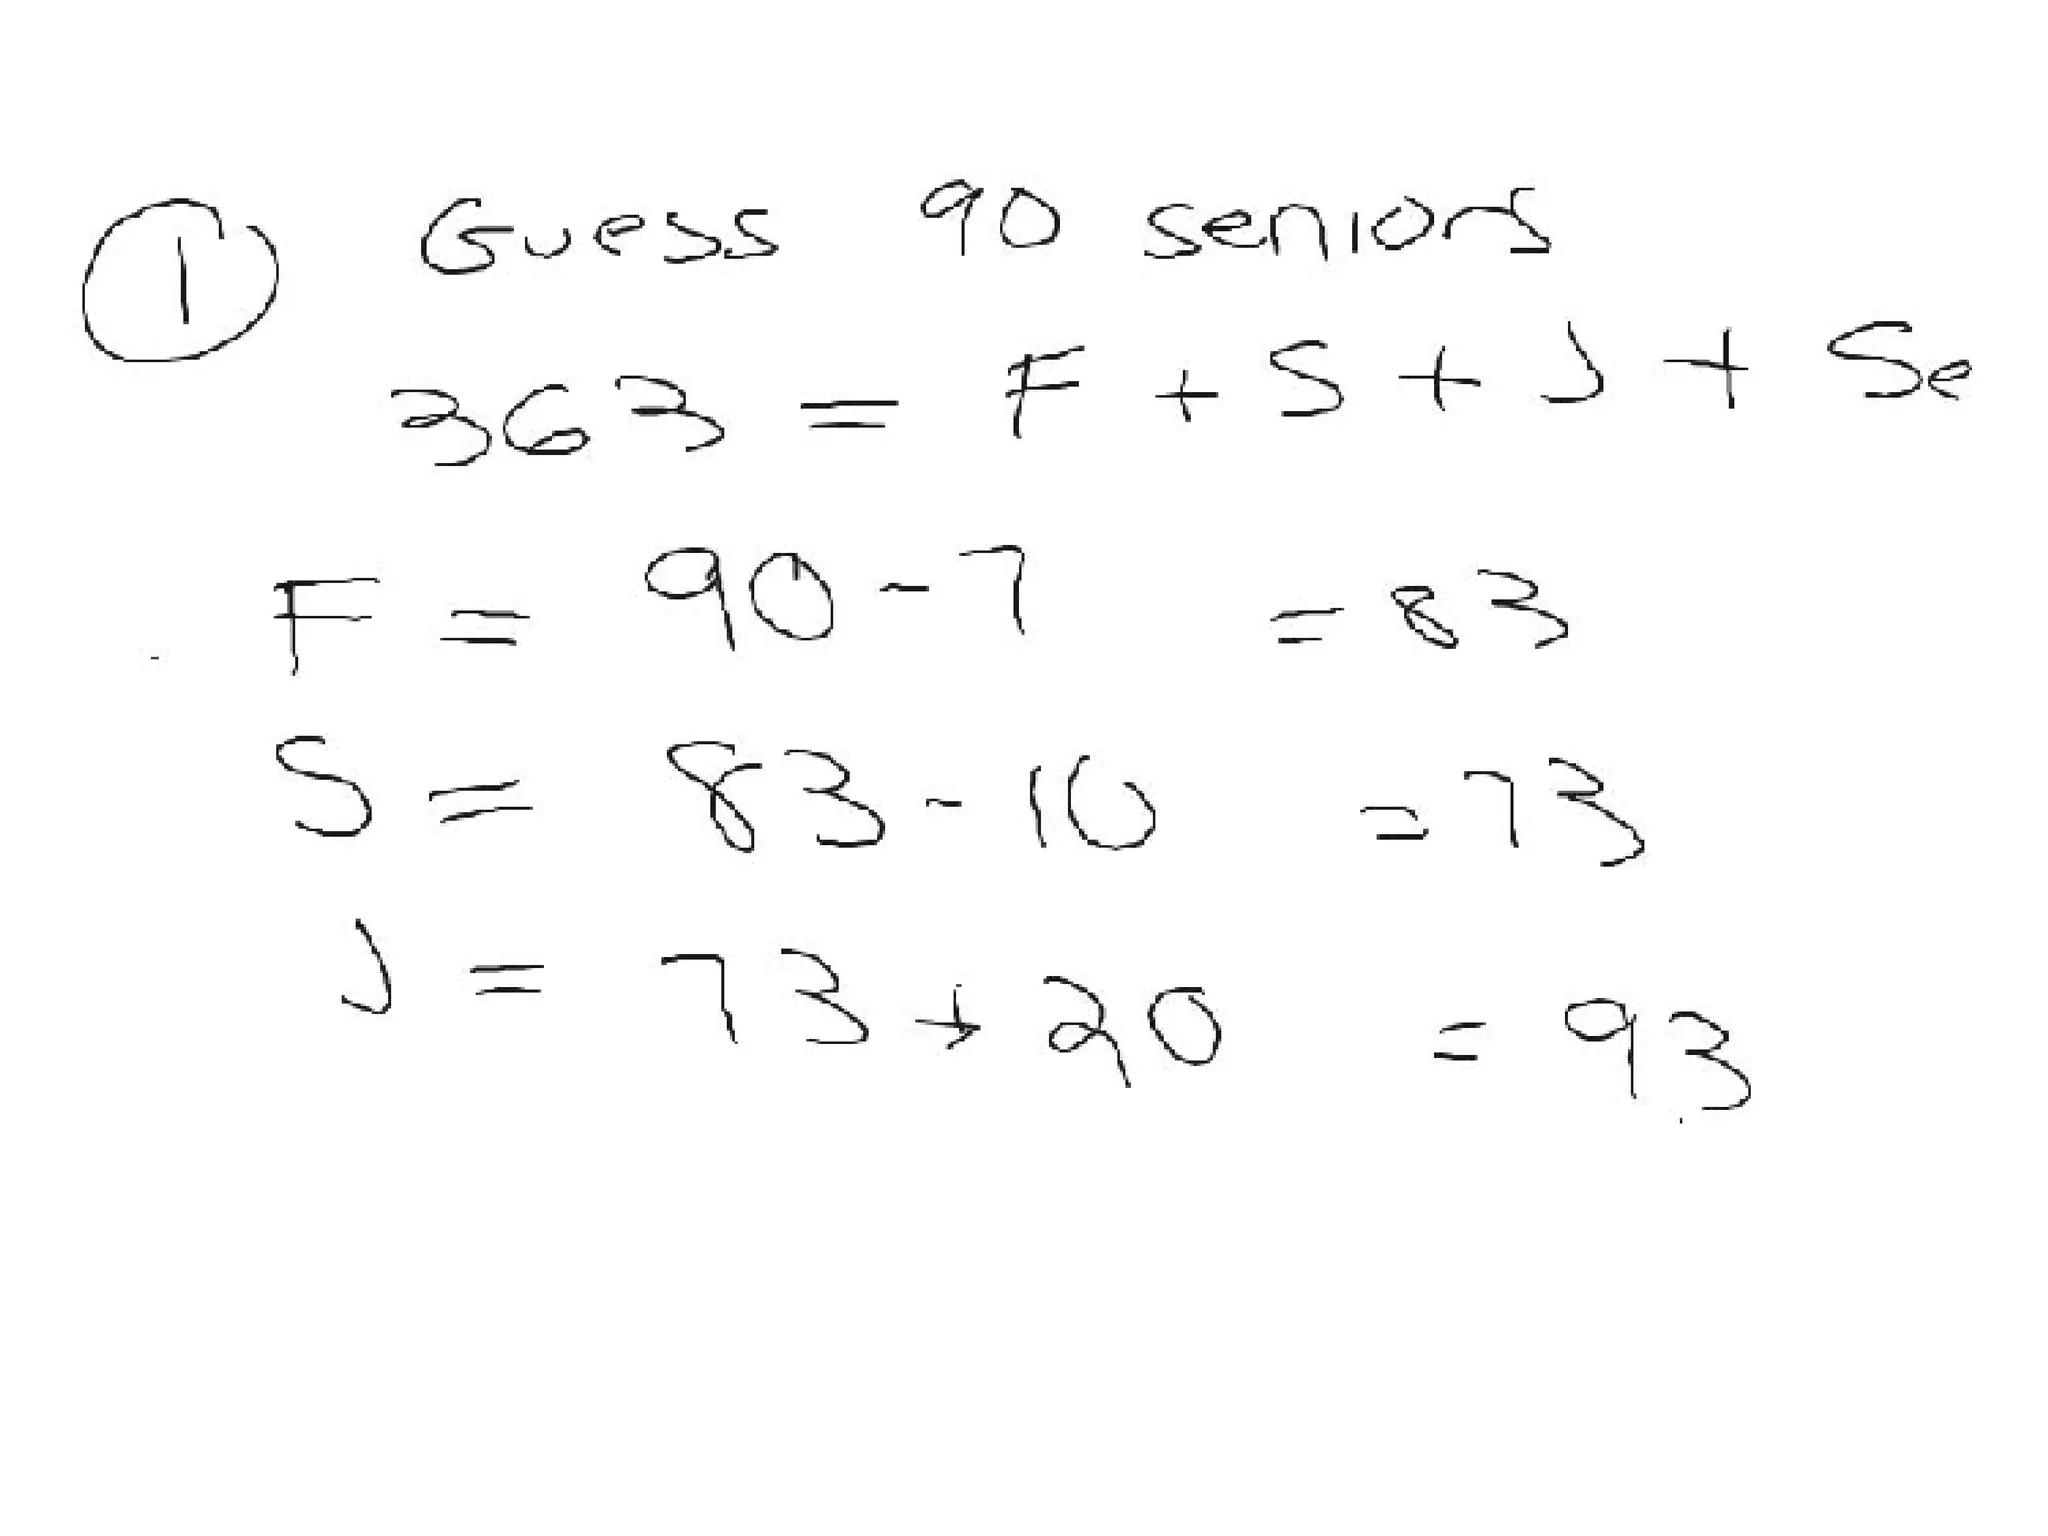 1 Guess 90 seniors
363 = F + S + J + Se
F = 90 - 7 = 83
S = 83 - 10 = 73
J = 73 + 20 = 93